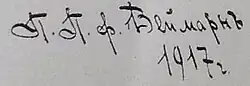 П. П. ф. Веймарнъ
1917 г.